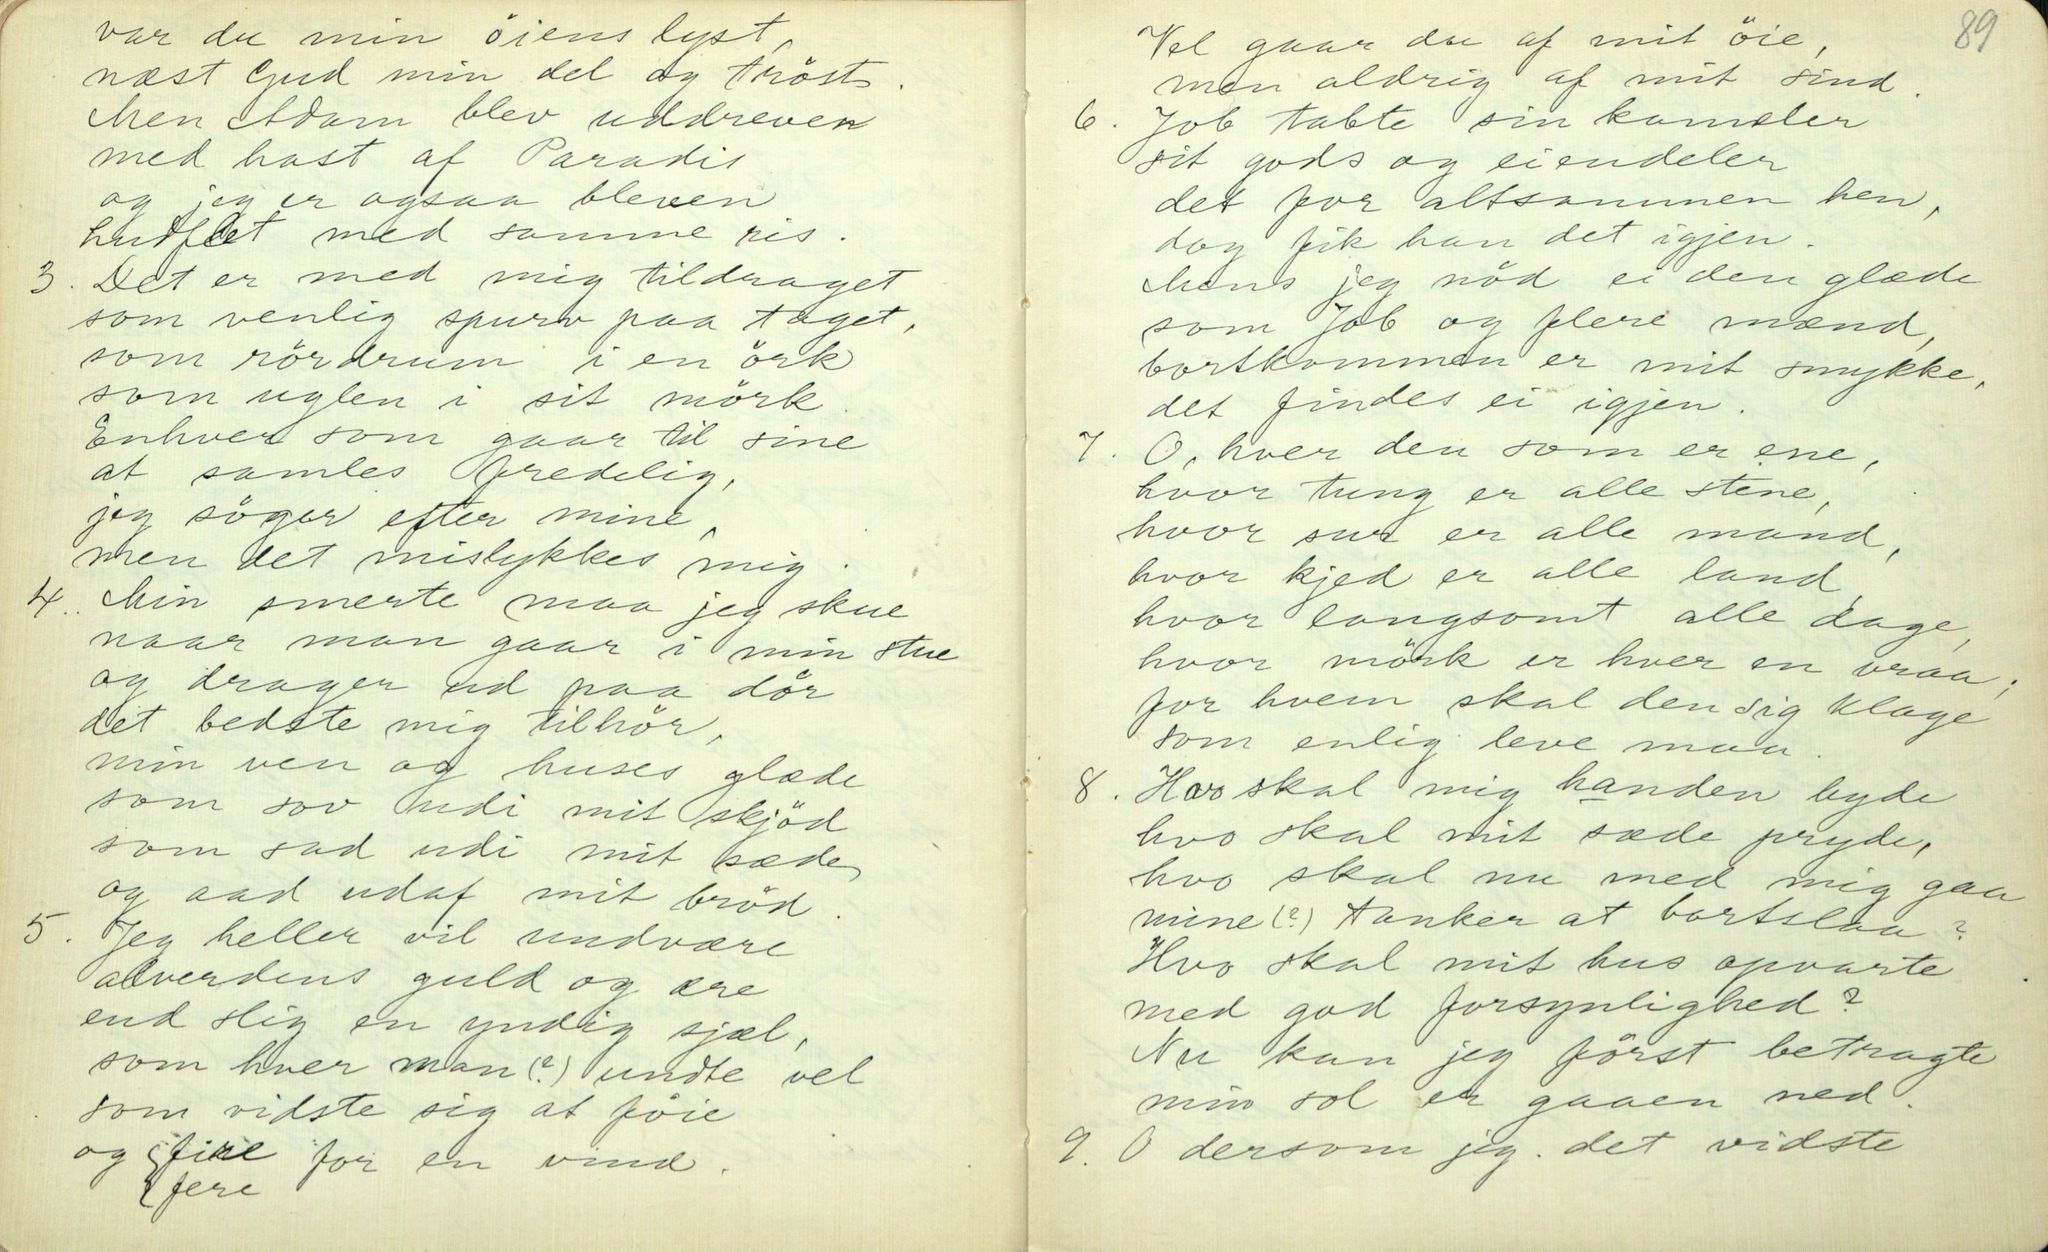 var du min öiens lyst,
næst Gud min del og tröst.
Men Adam blev uddreven
med hast af Paradis
og jeg er ogsaa bleven
hudflet med samme ris.
3. Det er med mig tildraget
som venlig spurv paa taget,
som rördrum i en örk
som uglen i sit mörk.
Enhver som gaar til sine
at samles fredelig,
jeg söger efter mine,
men det mislykkes mig.
4. Min smerte maa jeg skue
naar man gaar i min stue
og drager ud paa dör
det bedste mig tilhör,
min ven og huses glæde
som sov udi mit skjöd
som sad udi mit sæde
og aad udaf mit bröd.
5. Jeg heller vil undvære
alverdens guld og ære
end slig en yndig sjæl,
som hver man (?) undte vel
som vidste sig at föie
og { fire for en vind.
{ fere
89
Vel gaar du af mit öie,
men aldrig af mit sind.
6. Job tabte sin kameler
sit gods og eiendeler
det for altsammen hen,
dog fik han det igjen.
Mens jeg nöd ei den glæde
som Job og flere mænd,
bortkommen er mit smykke,
det findes ei igjen.
7. O, hver den som er ene,
hvor tung er alle stene,
hvor sur er alle mand,
hvor kjed er alle land,
hvor langsomt alle dage,
hvor mörk er hver en vraa;
for hvem skal den sig klage
som enlig leve maa.
8. Hvo skal mig handen byde
hvo skal mit sæde pryde,
hvo skal nu med mig gaa
mine (?) tanker at bortslaa?
Hvo skal mit hus opvarte
med god forsynlighed?
Nu kan jeg först betragte
min sol er gaaen ned.
9. O dersom jeg det vidste